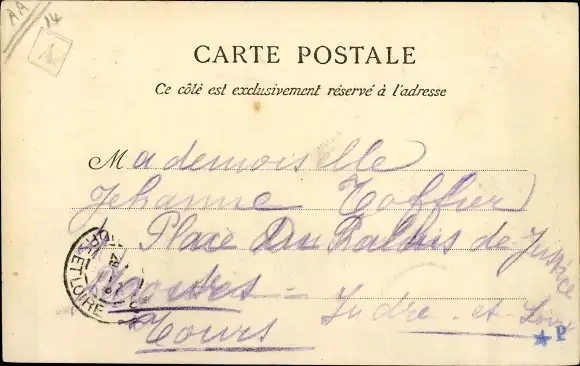 AA
14
CARTE POSTALE
Ce côté est exclusivement réservé à l'adresse
Mademoiselle
Jehanne
Place Du Palais de Justice
Tours
Indre-et-Loire
ET LOIRE
29
P